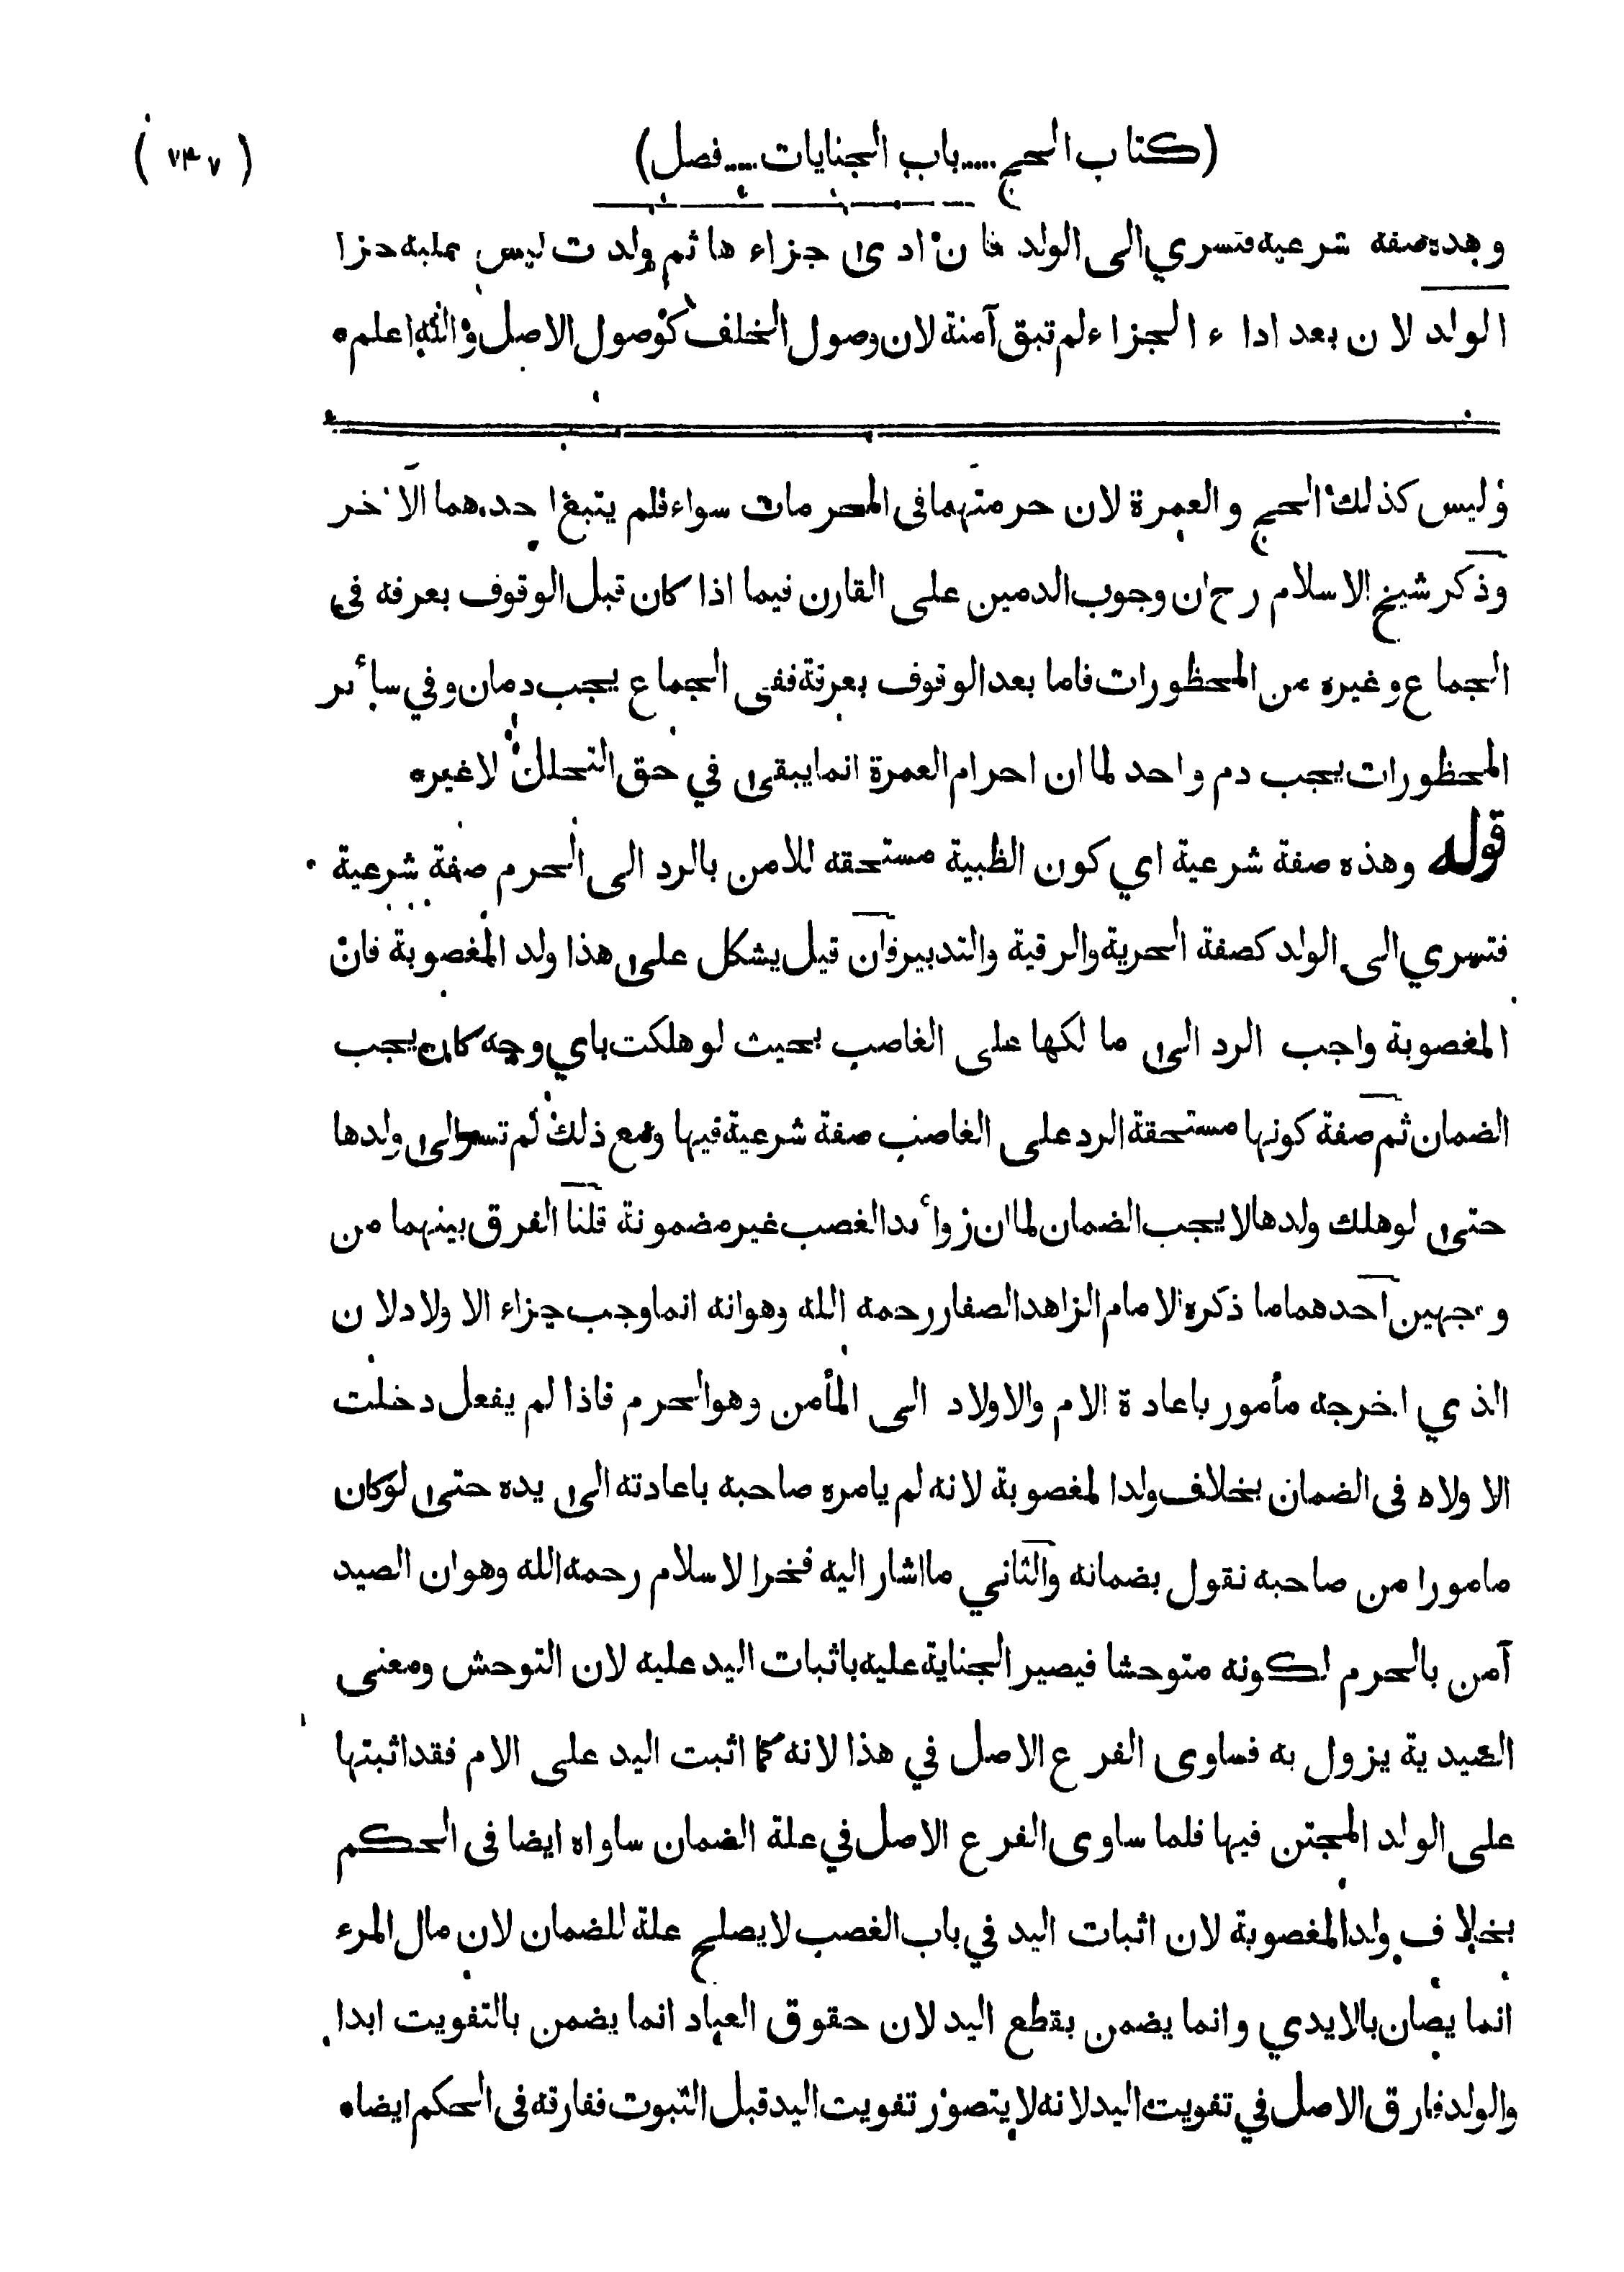 (كتاب الحج.....باب الجنايات.....فصل) (٧٤٧)
وهذه صفة شرعية فتسري الى الولد فان ادى جزاءها ثم ولدت ليس عليه جزا
الولد لان بعد اداء الجزاء لم تبق آمنة لان وصول الخلف كوصول الاصل والله اعلم ه
وليس كذلك الحج والعمرة لان حرمتهما فى المحرمات سواء فلم يتبع احدهما الآخر
وذكر شيخ الاسلام رح ان وجوب الدمين على القارن فيما اذا كان قبل الوقوف بعرفه في
الجماع وغيره من المحظورات فاما بعد الوقوف بعرفة ففى الجماع يجب دمان وفي سائر
المحظورات يجب دم واحد لما ان احرام العمرة انما يبقى في حق التحلل لا غير ه
قوله وهذه صفة شرعية اي كون الظبية مستحقه للامن بالرد الى الحرم صفة شرعية
فتسري الى الولد كصفة الحرية والرقية والتدبير فان قيل يشكل على هذا ولد المغصوبة فان
المغصوبة واجب الرد الى مالكها على الغاصب بحيث لو هلكت باي وجه كان يجب
الضمان ثم صفة كونها مستحقة الرد على الغاصب صفة شرعية فيها ومع ذلك لم تسر الى ولدها
حتى لو هلك ولدها لا يجب الضمان لما ان زوائد الغصب غير مضمونة قلنا الفرق بينهما من
وجهين احدهما ما ذكره الامام الزاهد الصفار رحمه الله وهو انه انما وجب جزاء الاولاد لان
الذي اخرجه مأمور باعادة الام والاولاد الى المأمن وهو الحرم فاذا لم يفعل دخلت
الاولاه فى الضمان بخلاف ولد المغصوبة لانه لم يامره صاحبه باعادته الى يده حتى لو كان
مامورا من صاحبه نقول بضمانه والثاني ما اشار اليه فخر الاسلام رحمه الله وهو ان الصيد
آمن بالحرم لكونه متوحشا فيصير الجناية عليه باثبات اليد عليه لان التوحش ومعنى
الصيدية يزول به فساوى الفرع الاصل في هذا لانه كما اثبت اليد على الام فقد اثبتها
على الولد المجتن فيها فلما ساوى الفرع الاصل في علة الضمان ساواه ايضا فى الحكم
بخلاف ولد المغصوبة لان اثبات اليد في باب الغصب لا يصلح علة للضمان لان مال المرء
انما يصان بالايدي وانما يضمن بقطع اليد لان حقوق العباد انما يضمن بالتفويت ابدا
والولد فارق الاصل في تفويت اليد لانه لا يتصور تفويت اليد قبل الثبوت ففارقه فى الحكم ايضا ه